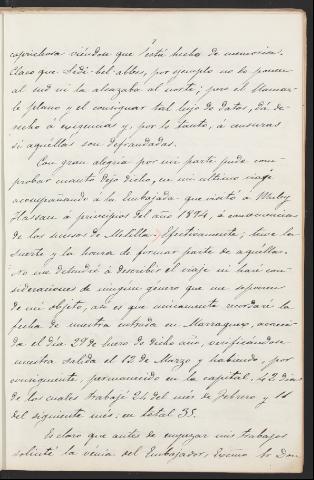 caprichosa viéndon que está hecho de memoria.
Claro que Sidi-bel-abbes, por ejemplo no lo ponen
al sud ni la alcazaba al norte; pero el llamar-
le plano y el consignar tal lujo de datos, dá de-
recho á exigencias y, por lo tanto, á censuras
si aquellas son defraudadas.
Con gran alegria por mi parte pude com-
probar cuanto dejo dicho, en mi ultimo viaje
acompañando á la Embajada que visitó á Muley
Hassan á principios del año 1894, á consecuencia
de los sucesos de Melilla. Efectivamente; tuve la
suerte y la honra de formar parte de aquélla.
No me detendré á describir el viaje ni haré con-
sideraciones de ningún género que me separen
de mi objeto, así es que unicamente recordaré la
fecha de nuestra entrada en Marraquex, acaeci-
da el dia 29 de Enero de dicho año, verificándose
nuestra salida el 12 de Marzo y habiendo, por
consiguiente, permanecido en la capital, 42 dias
de los cuales trabajé 24 del mes de Febrero y 11
del siguiente mes; en total 35.
Es claro que antes de empezar mis trabajos
solicité la vénia del Embajador, Excmo Sr Don